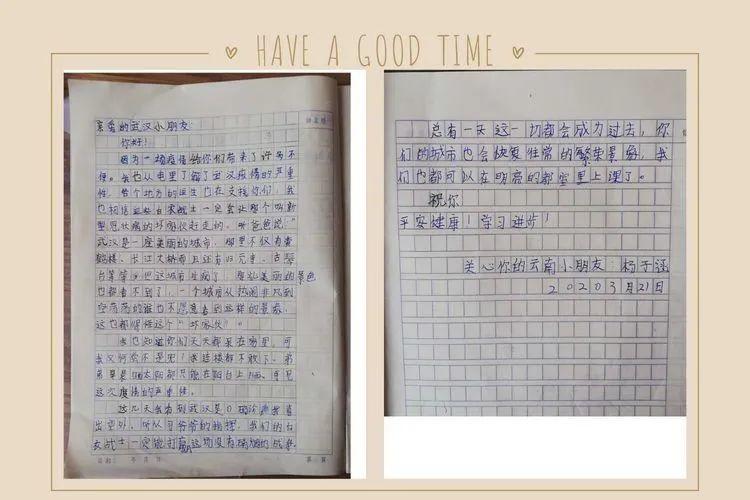 HAVE A GOOD TIME
亲爱的武汉小朋友
你好!
因为一场疫情给你们带来了许多不
便。我也从电里了解了武汉疫情的严重
性,各个地方的医生也在支援你们,我
也相信这些白衣战士一定会把那个叫新
型冠状病的坏家伙赶走的。听爸爸说:“
武汉是一座美丽的城市,那里不仅有黄
鹤楼、长江大桥而且还有归元寺、古琴
台等等,但这城市生病了,
美丽的景色
也都看不到了,一个城市从热闹非凡到
空荡荡的谁也不愿意看到这样的景象,
这也都怪这个“坏家伙”!
我也知道你们天天都呆在家里,可
我又何尝不是呢!我连楼都不敢下,
就
晒太阳都只能在阳台上晒,可见
这次疫情的严重性。
这几天我看到武汉是0确诊
出室外,听从习爷爷的指挥,我们的白
衣战士一定能打赢这场没有硝烟的战争。
总有一天这一切都会成为过去,你
们的城市也会恢复往常的繁荣景象,我
们也都可以在明亮的教室里上课了。
祝你
平安健康!学习进步!
关心你的云南小朋友:杨子涵
2020年3月21日